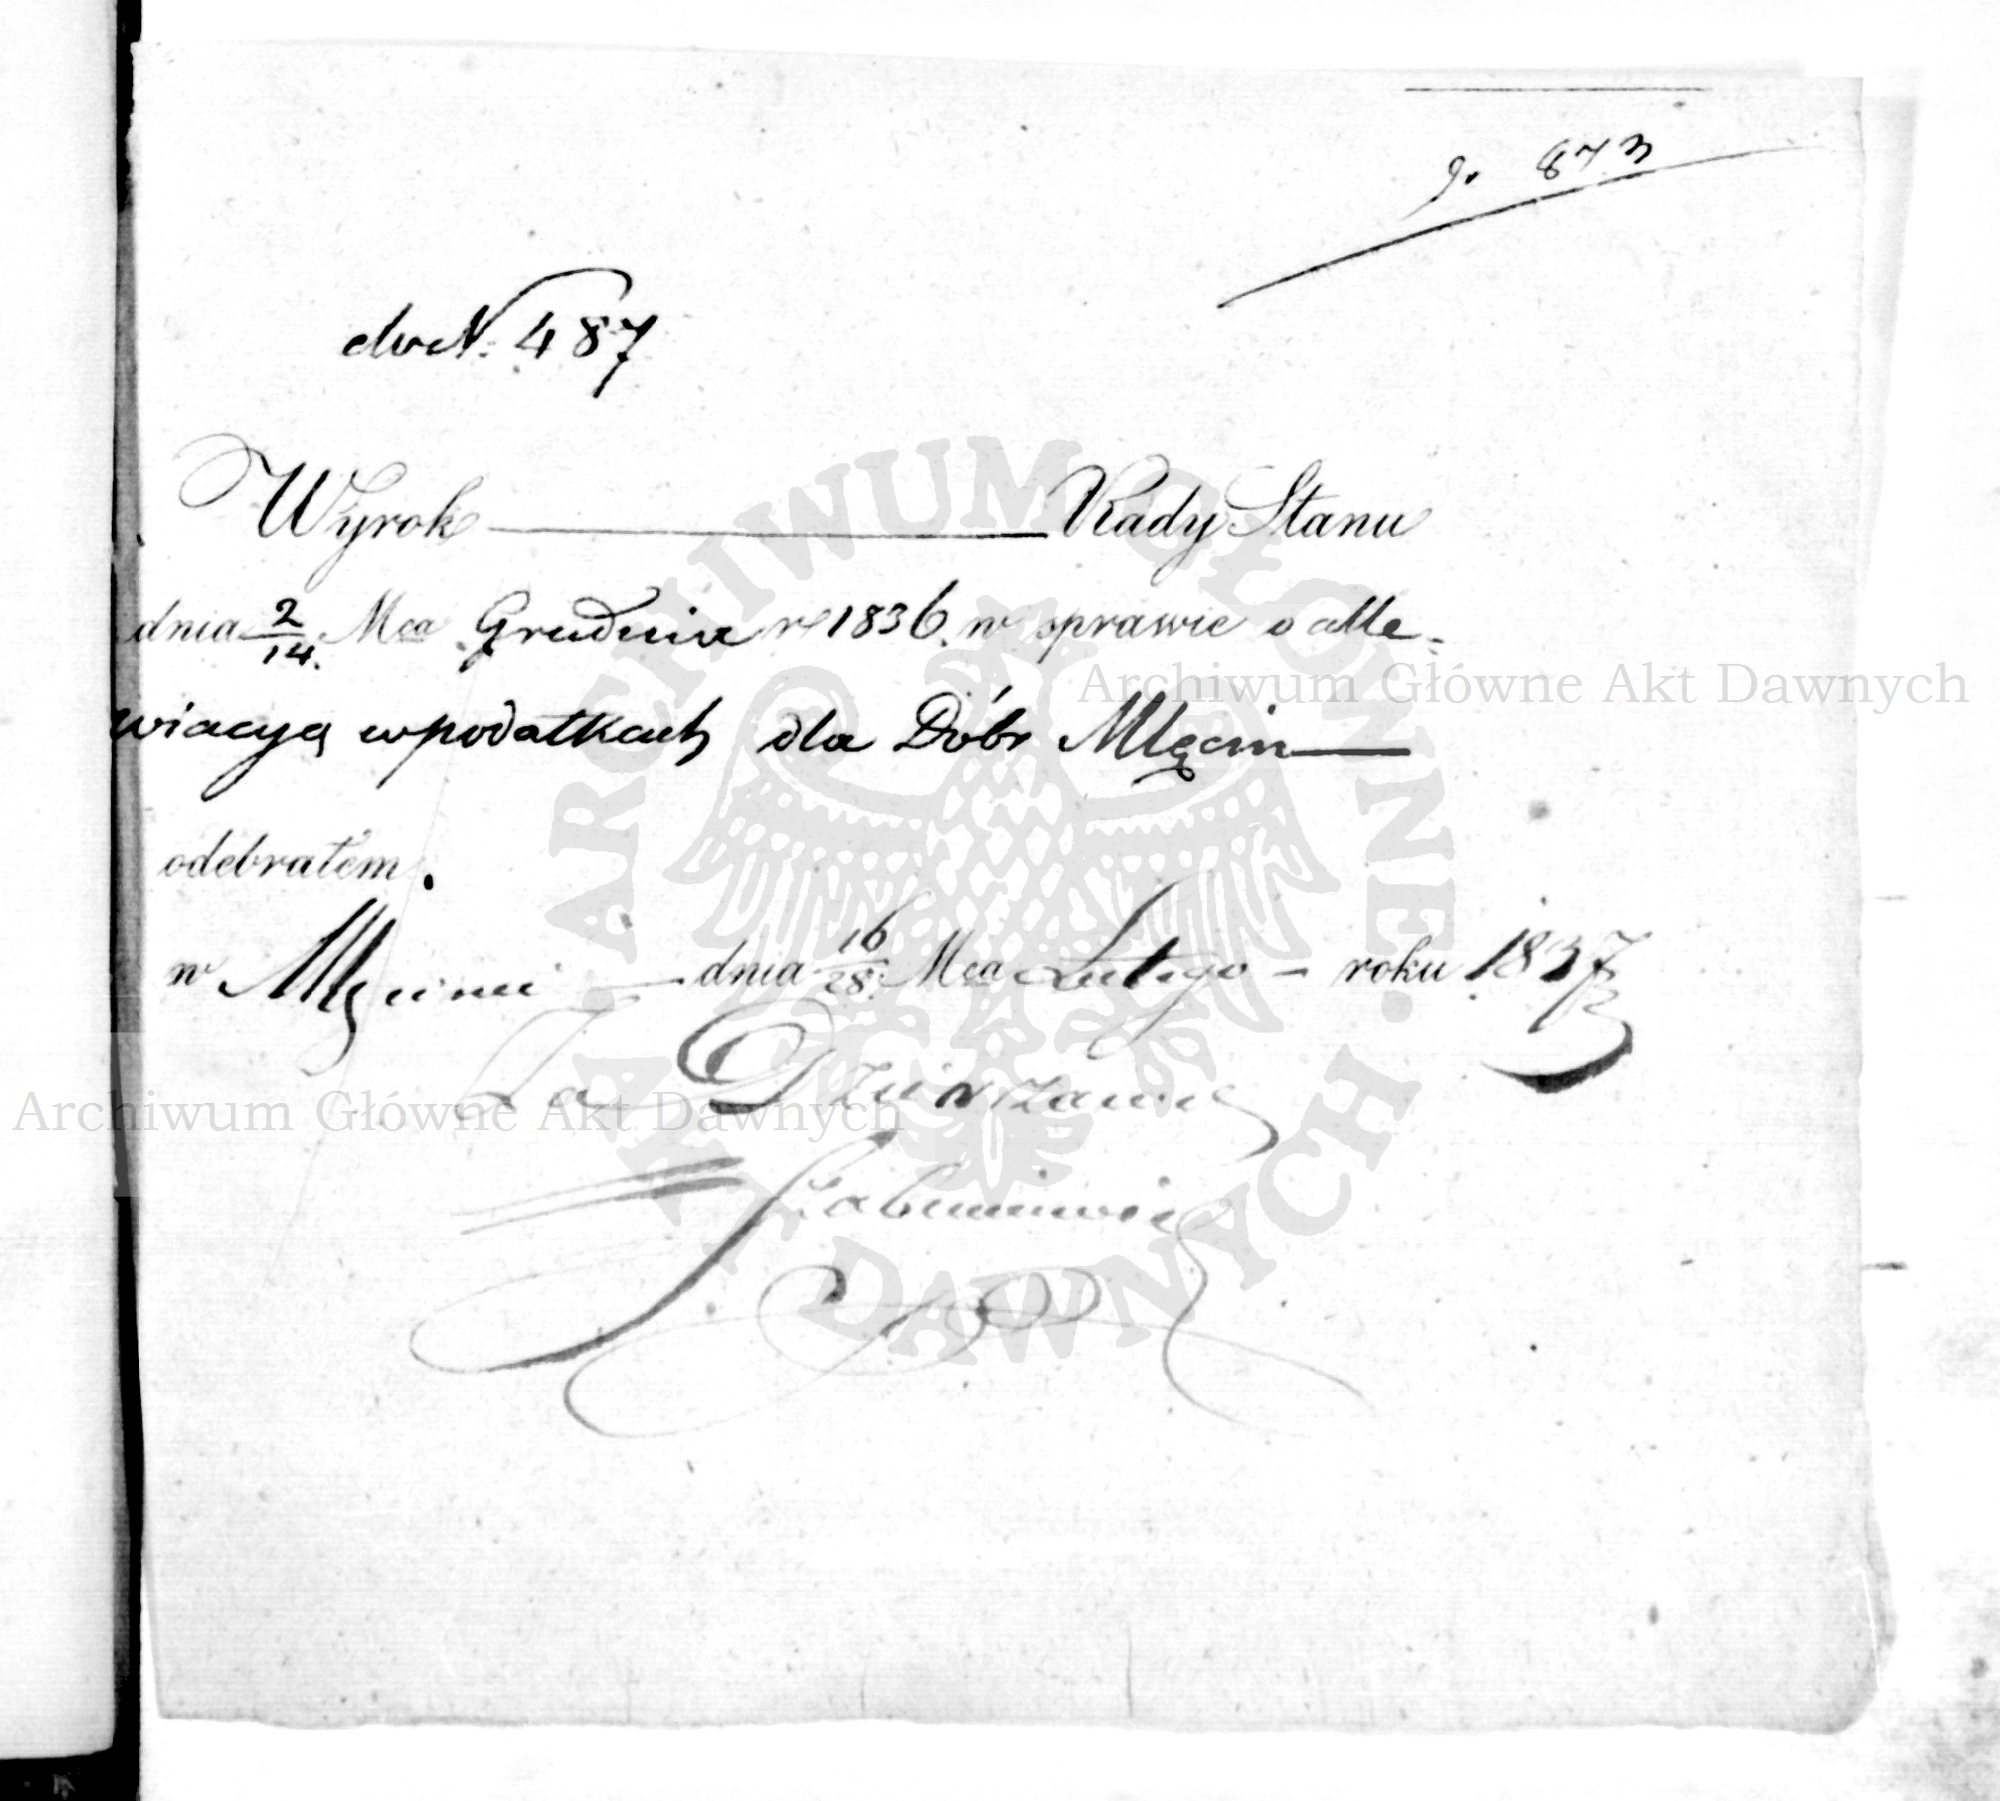 g. 873
do N. 487
Wyrok Rady Stanu
dnia 2/14. Mca Grudnia r 1836. w sprawie o alle-
wiacyą w podatkach dla Dóbr Mlęcin
odebrałem.
w Mlęcinie dnia 16/28. Mca Lutego - roku 1837
Za Dzierzawcę
Archiwum Główne Akt Dawnych
Archiwum Główne Akt Dawnych
ARCHIWUM GŁÓWNE AKT DAWNYCH